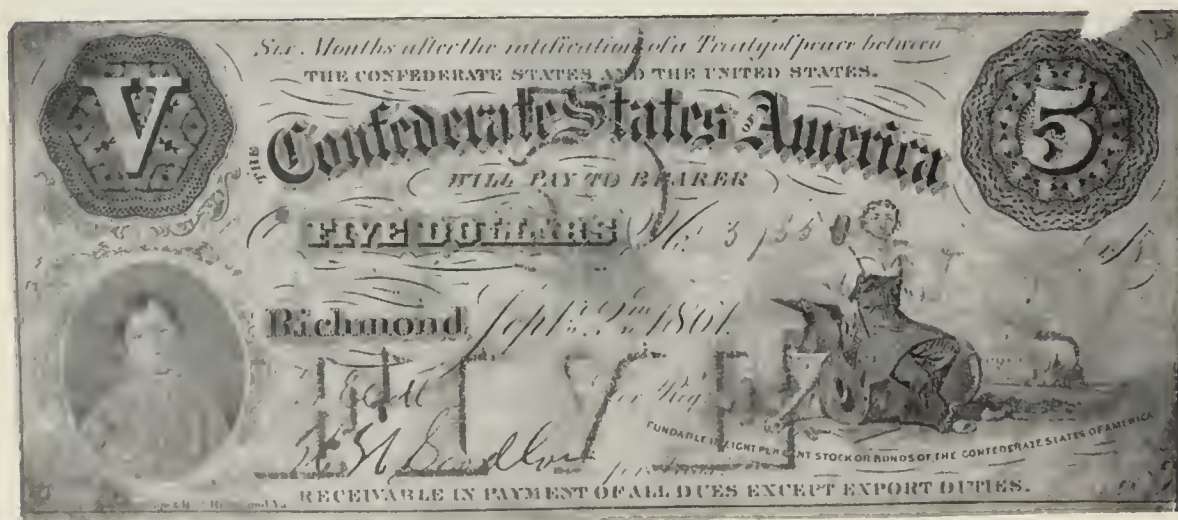 Six Months after the ratification of a Treaty of peace between
THE CONFEDERATE STATES AND THE UNITED STATES.
V
5
THE Confederate States OF America
WILL PAY TO BEARER
FIVE DOLLARS No.
Richmond Sept. 2nd 1861.
FIVE
for Reg.
for
FUNDABLE IN EIGHT PER CENT STOCK OR BONDS OF THE CONFEDERATE STATES OF AMERICA
RECEIVABLE IN PAYMENT OF ALL DUES EXCEPT EXPORT DUTIES.
Richmond Va